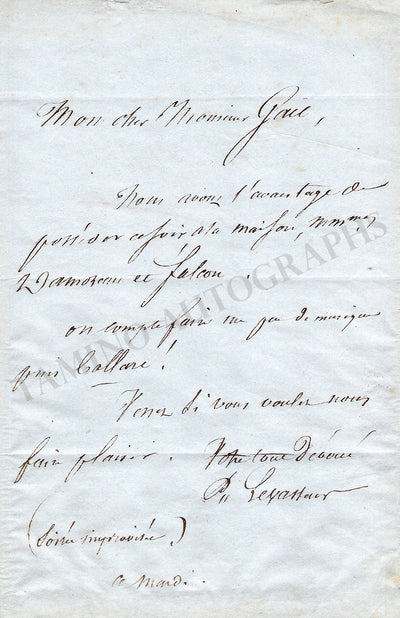 Mon cher Monsieur Gail,
Nous avons l'avantage de
posséder ce soir à la maison, Mmes
Damoreau et Falcon.
on compte faire un peu de musique
pour
Venez si vous voulez nous
faire plaisir. Votre tout Dévoué
Levasseur
(Soirée improvisée.)
ce mardi.
TAMINO AUTOGRAPHS